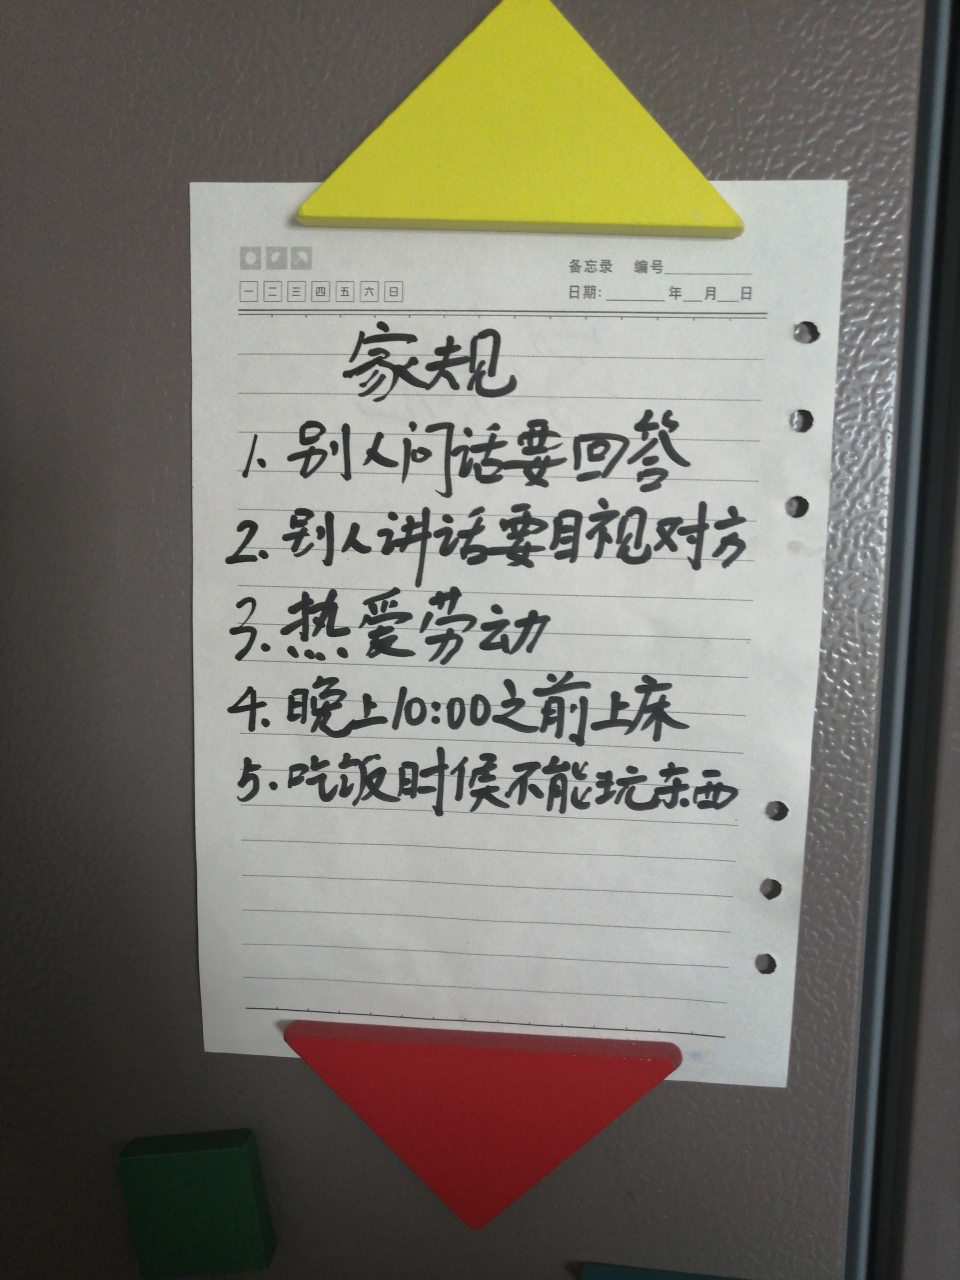 备忘录 编号
一 二 三 四 五 六 日 日期: 年 月 日
家规
1. 别人问话要回答
2. 别人讲话要目视对方
3. 热爱劳动
4. 晚上10:00之前上床
5. 吃饭时候不能玩东西